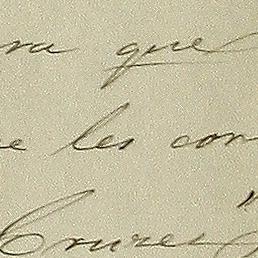 ra que
e les con
Crures"